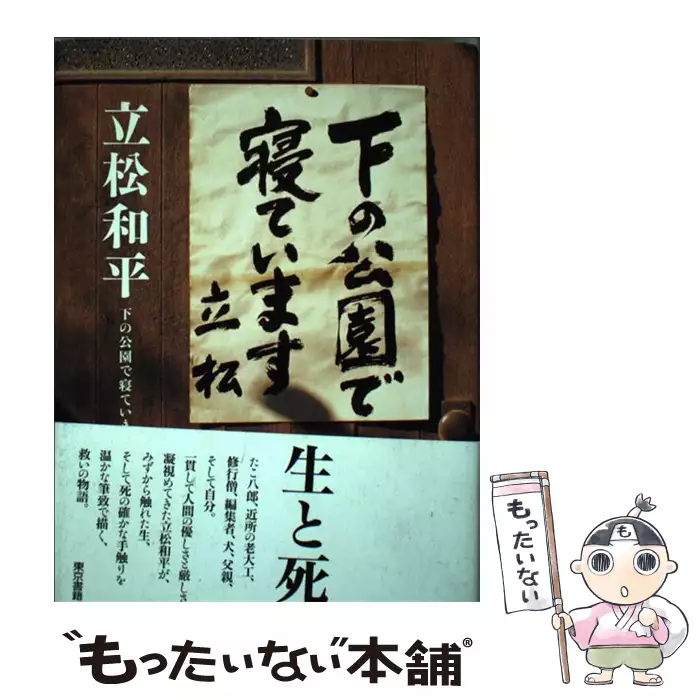 立松和平
下の公園で寝ていま
下の公園で
寝ています
立松
生と死
たこ八郎、近所の老大工、
修行僧、編集者、犬、父親、
そして自分。
一貫して人間の優しさと厳しさ
凝視めてきた立松和平が、
みずから触れた生、
そして死の確かな手触りを
温かな筆致で描く、
救いの物語。
東京書籍
もったいない
も
"もったいない"本舗®